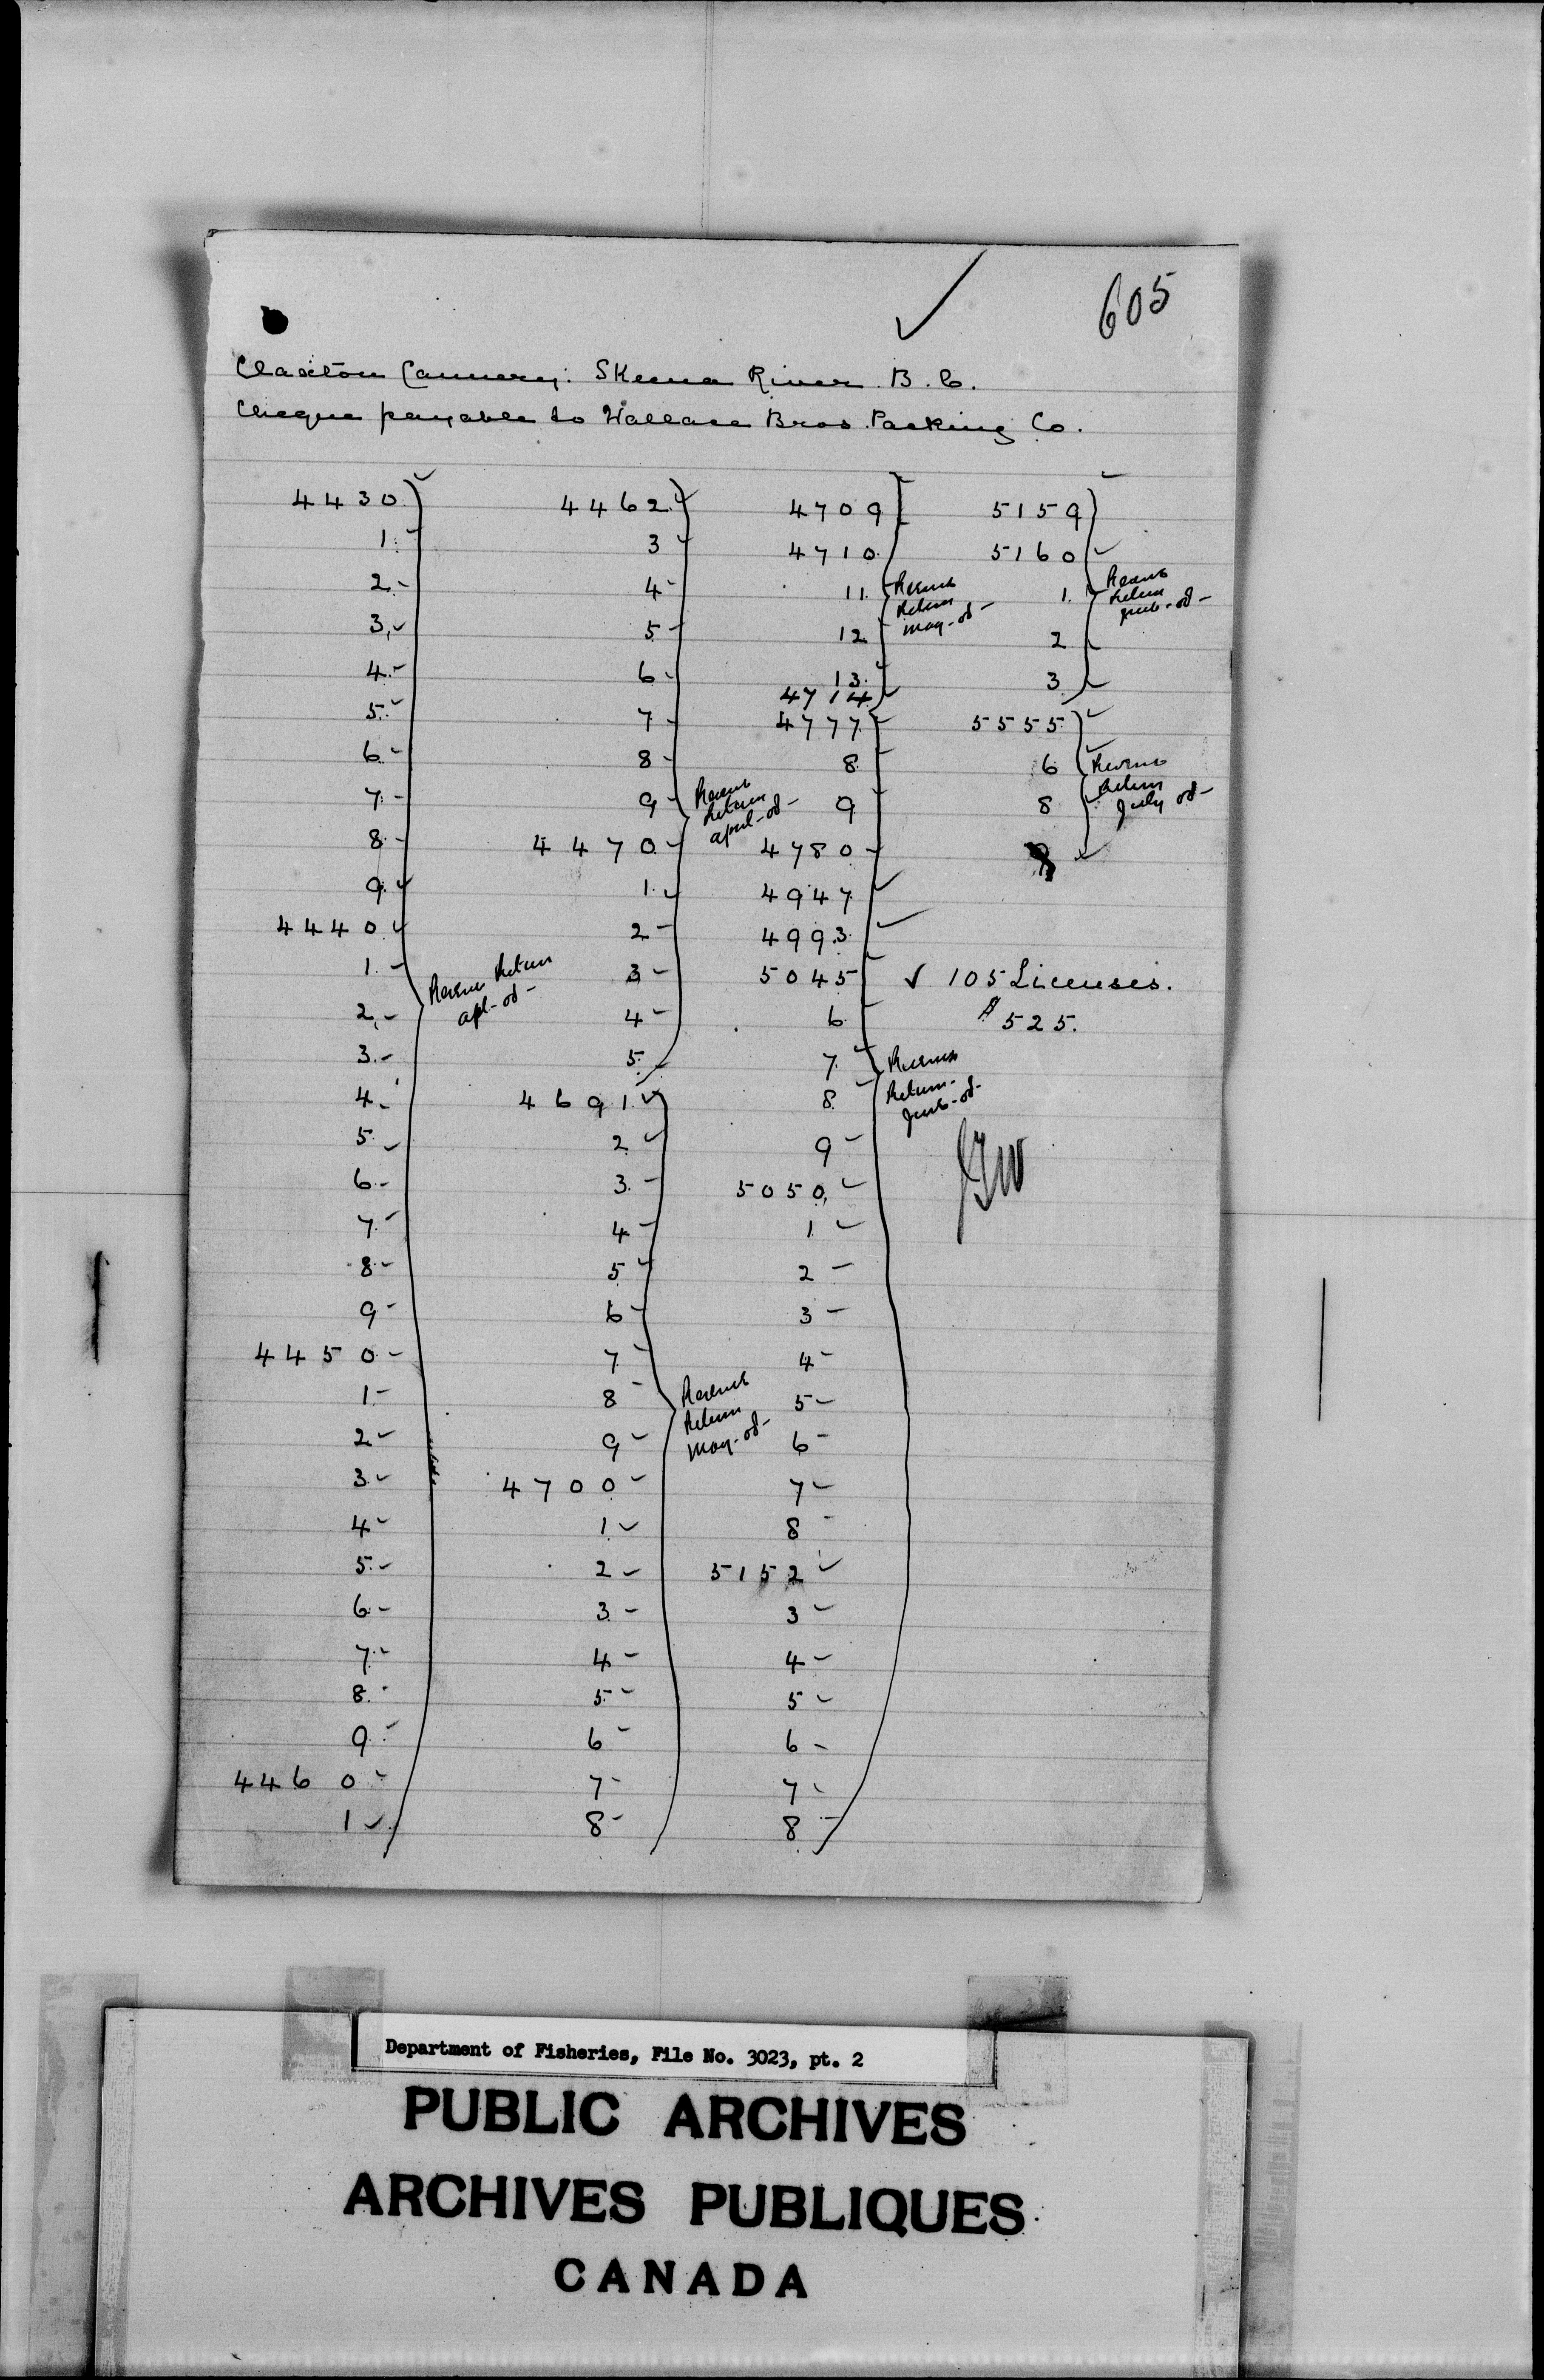 605
Claxton Cannery. Skeena River B.C.
Cheque payable to Wallace Bros Packing Co.
4430
1
2
3
4
5
6
7
8
9
4440
1
2
3
4
5
6
7
8
9
4450
1
2
3
4
5
6
7
8
9
4460
1
Revenue Return
apl-08-
4462
3
4
5
6
7
8
9
4470
1
2
3
4
5
Revenue
Return
april-08-
4691
2
3
4
5
6
7
8
9
4700
1
2
3
4
5
6
7
8
Revenue
Return
May-08-
4709
4710
11
12
13
4714
Revenue
Return
May-08-
4777
8
9
4780
4947
4993
5045
6
7
8
9
5050
1
2
3
4
5
6
7
8
5152
3
4
5
6
7
8
Revenue
Return
June-08-
5159
5160
1
2
3
Revenue
Return
June-08-
5555
6
8
9
Revenue
Return
July 08-
✓ 105 Licenses.
$525.
Department of Fisheries, File No. 3023, pt. 2
PUBLIC ARCHIVES
ARCHIVES PUBLIQUES
CANADA